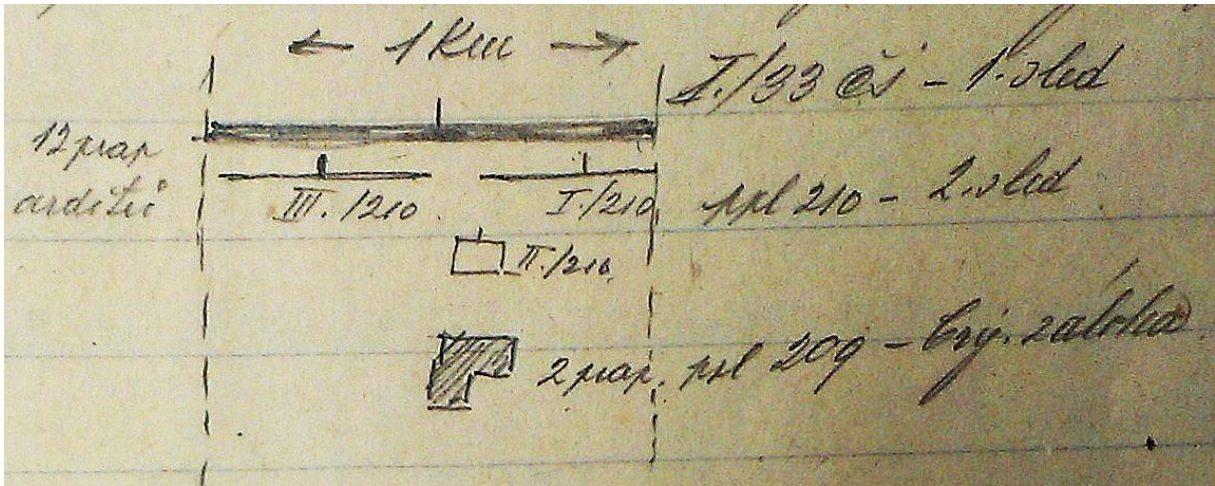 ← 1 Km →
I./33 čs - 1. sled
12 prap
arditů
III./210
I./210
ppl 210 - 2. sled
II./210
2 prap. ppl 209 - brig. záloha